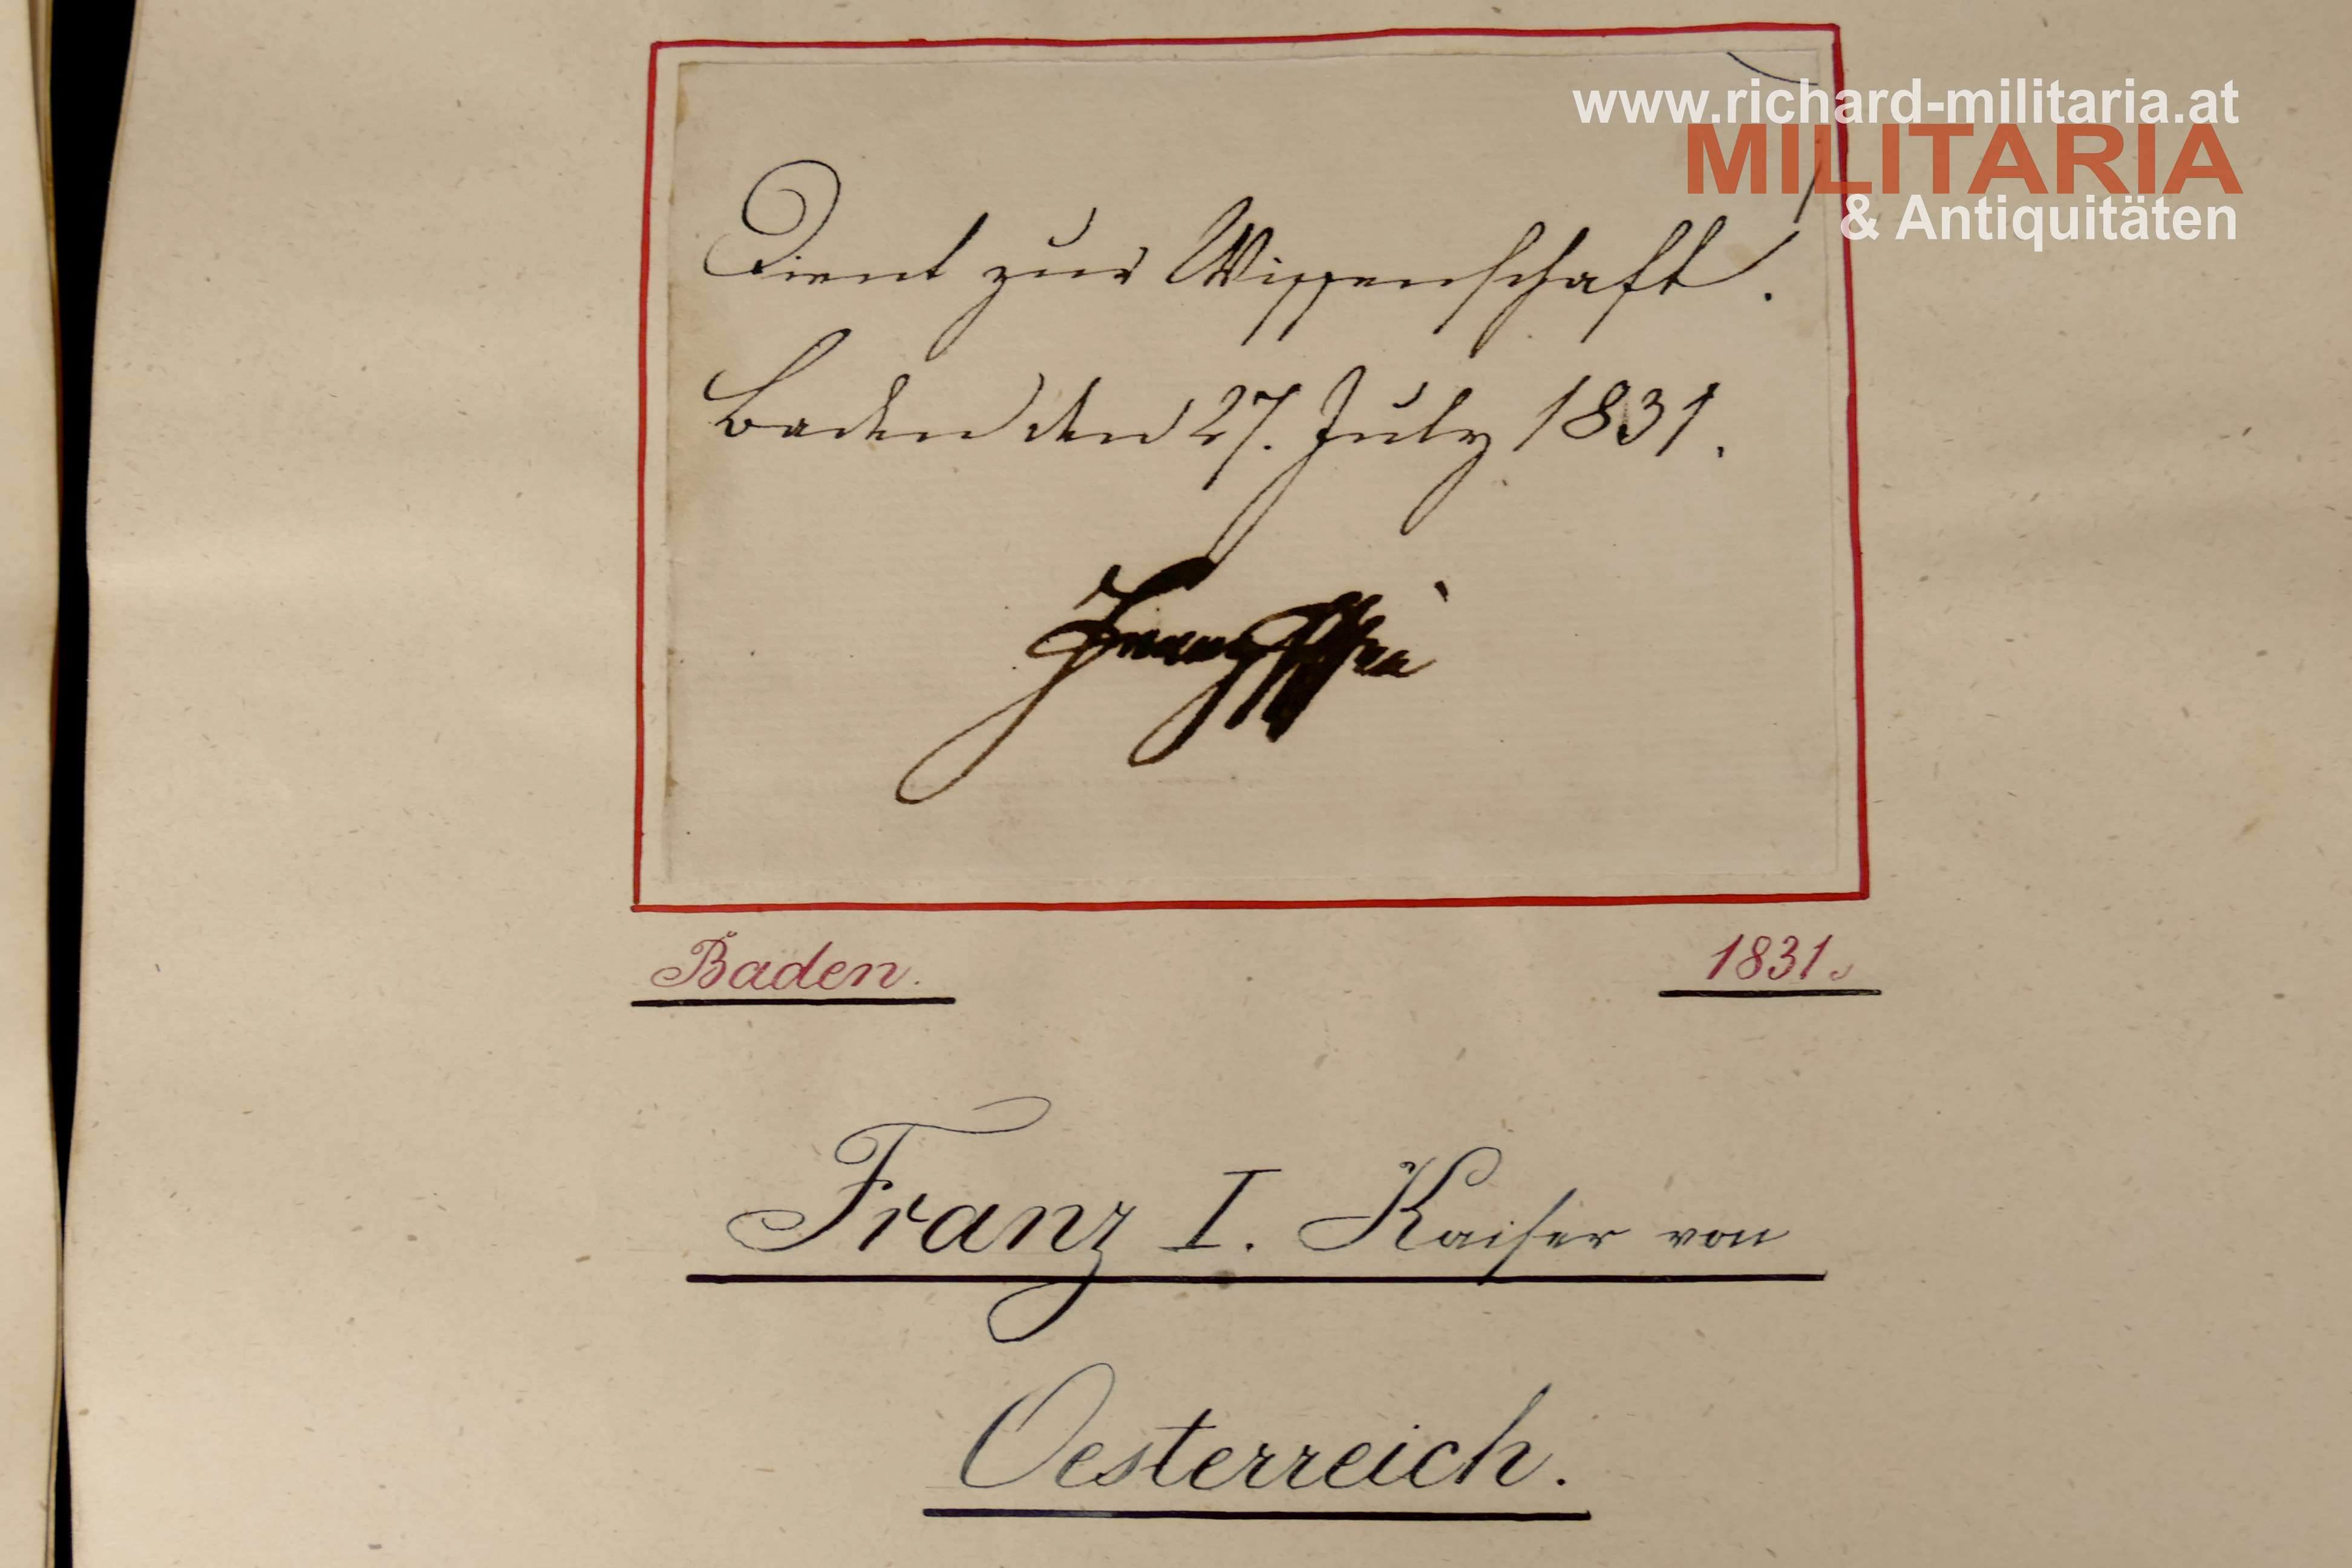 www.richard-militaria.at
MILITARIA
& Antiquitäten
Dient zur Wissenschaft.
Baden den 27. July 1831.
Franz
Baden.
1831.
Franz I. Kaiser von
Oesterreich.